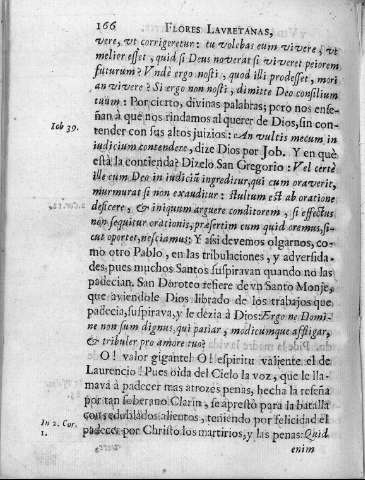 166
FLORES LAVRETANAS,
vere, vt corrigeretur: tu volebas eum vivere, vt
melior esset, quid si Deus noverat si viveret peiorem
futurum? Vndè ergo nosti, quod illi prodesset, mori
an vivere? Si ergo non nosti, dimitte Deo consilium
tuum: Por cierto, divinas palabras; pero nos enseñan
à que nos rindamos al querer de Dios, sin con-
Iob 39.
tender con sus altos juizios: An vultis mecum in
iudicium contendere, dize Dios por Job. Y en què
està la contienda? Dizelo San Gregorio: Vel certè
ille cum Deo in iudiciũ ingreditur, qui cum oraverit,
murmurat si non exauditur: stultum est ab oratione
descere, & iniquum arguere conditorem, si effectus
non sequitur orationis, præsertim cum quid oremus, si-
cut oportet, nesciamus: Y assi devemos olgarnos, co-
mo otro Pablo, en las tribulaciones, y adversida-
des, pues muchos Santos suspiravan quando no las
padecian. San Doroteo refiere de vn Santo Monje,
que aviendole Dios librado de los trabajos que
padecia, suspirava, y le dezia à Dios: Ergo ne Domi-
ne non sum dignus, qui patiar, modicumque affligar,
& tribuler pro amore tuo?
O! valor gigante! O! espiritu valiente el de
Laurencio! Pues oida del Cielo la voz, que le lla-
mavà à padecer mas atrozes penas, hecha la reseña
por tan soberano Clarin, se aprestò para la batalla
con redoblados alientos, teniendo por felicidad el
In 2. Cor.
1.
padecer por Christo los martirios, y las penas: Quid
enim